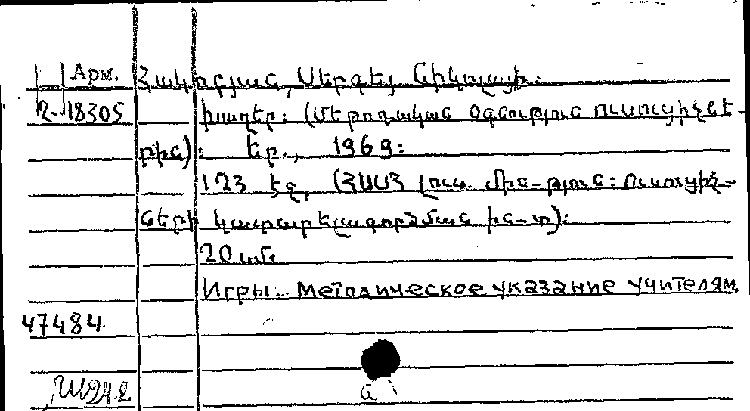 Арм. Հակոբյան, Սերգեյ Նիկոլայի.
2-18305 Խաղեր: (Մեթոդական օգնություն ուսուցիչնե-
րին): Եր., 1969:
123 էջ, (ՀՍՍՀ լուս. մին-թյուն: Ուսուցիչ-
ների կատարելագործման ին-տ):
20 սմ.
Игры. Методическое указание учителям.
47484